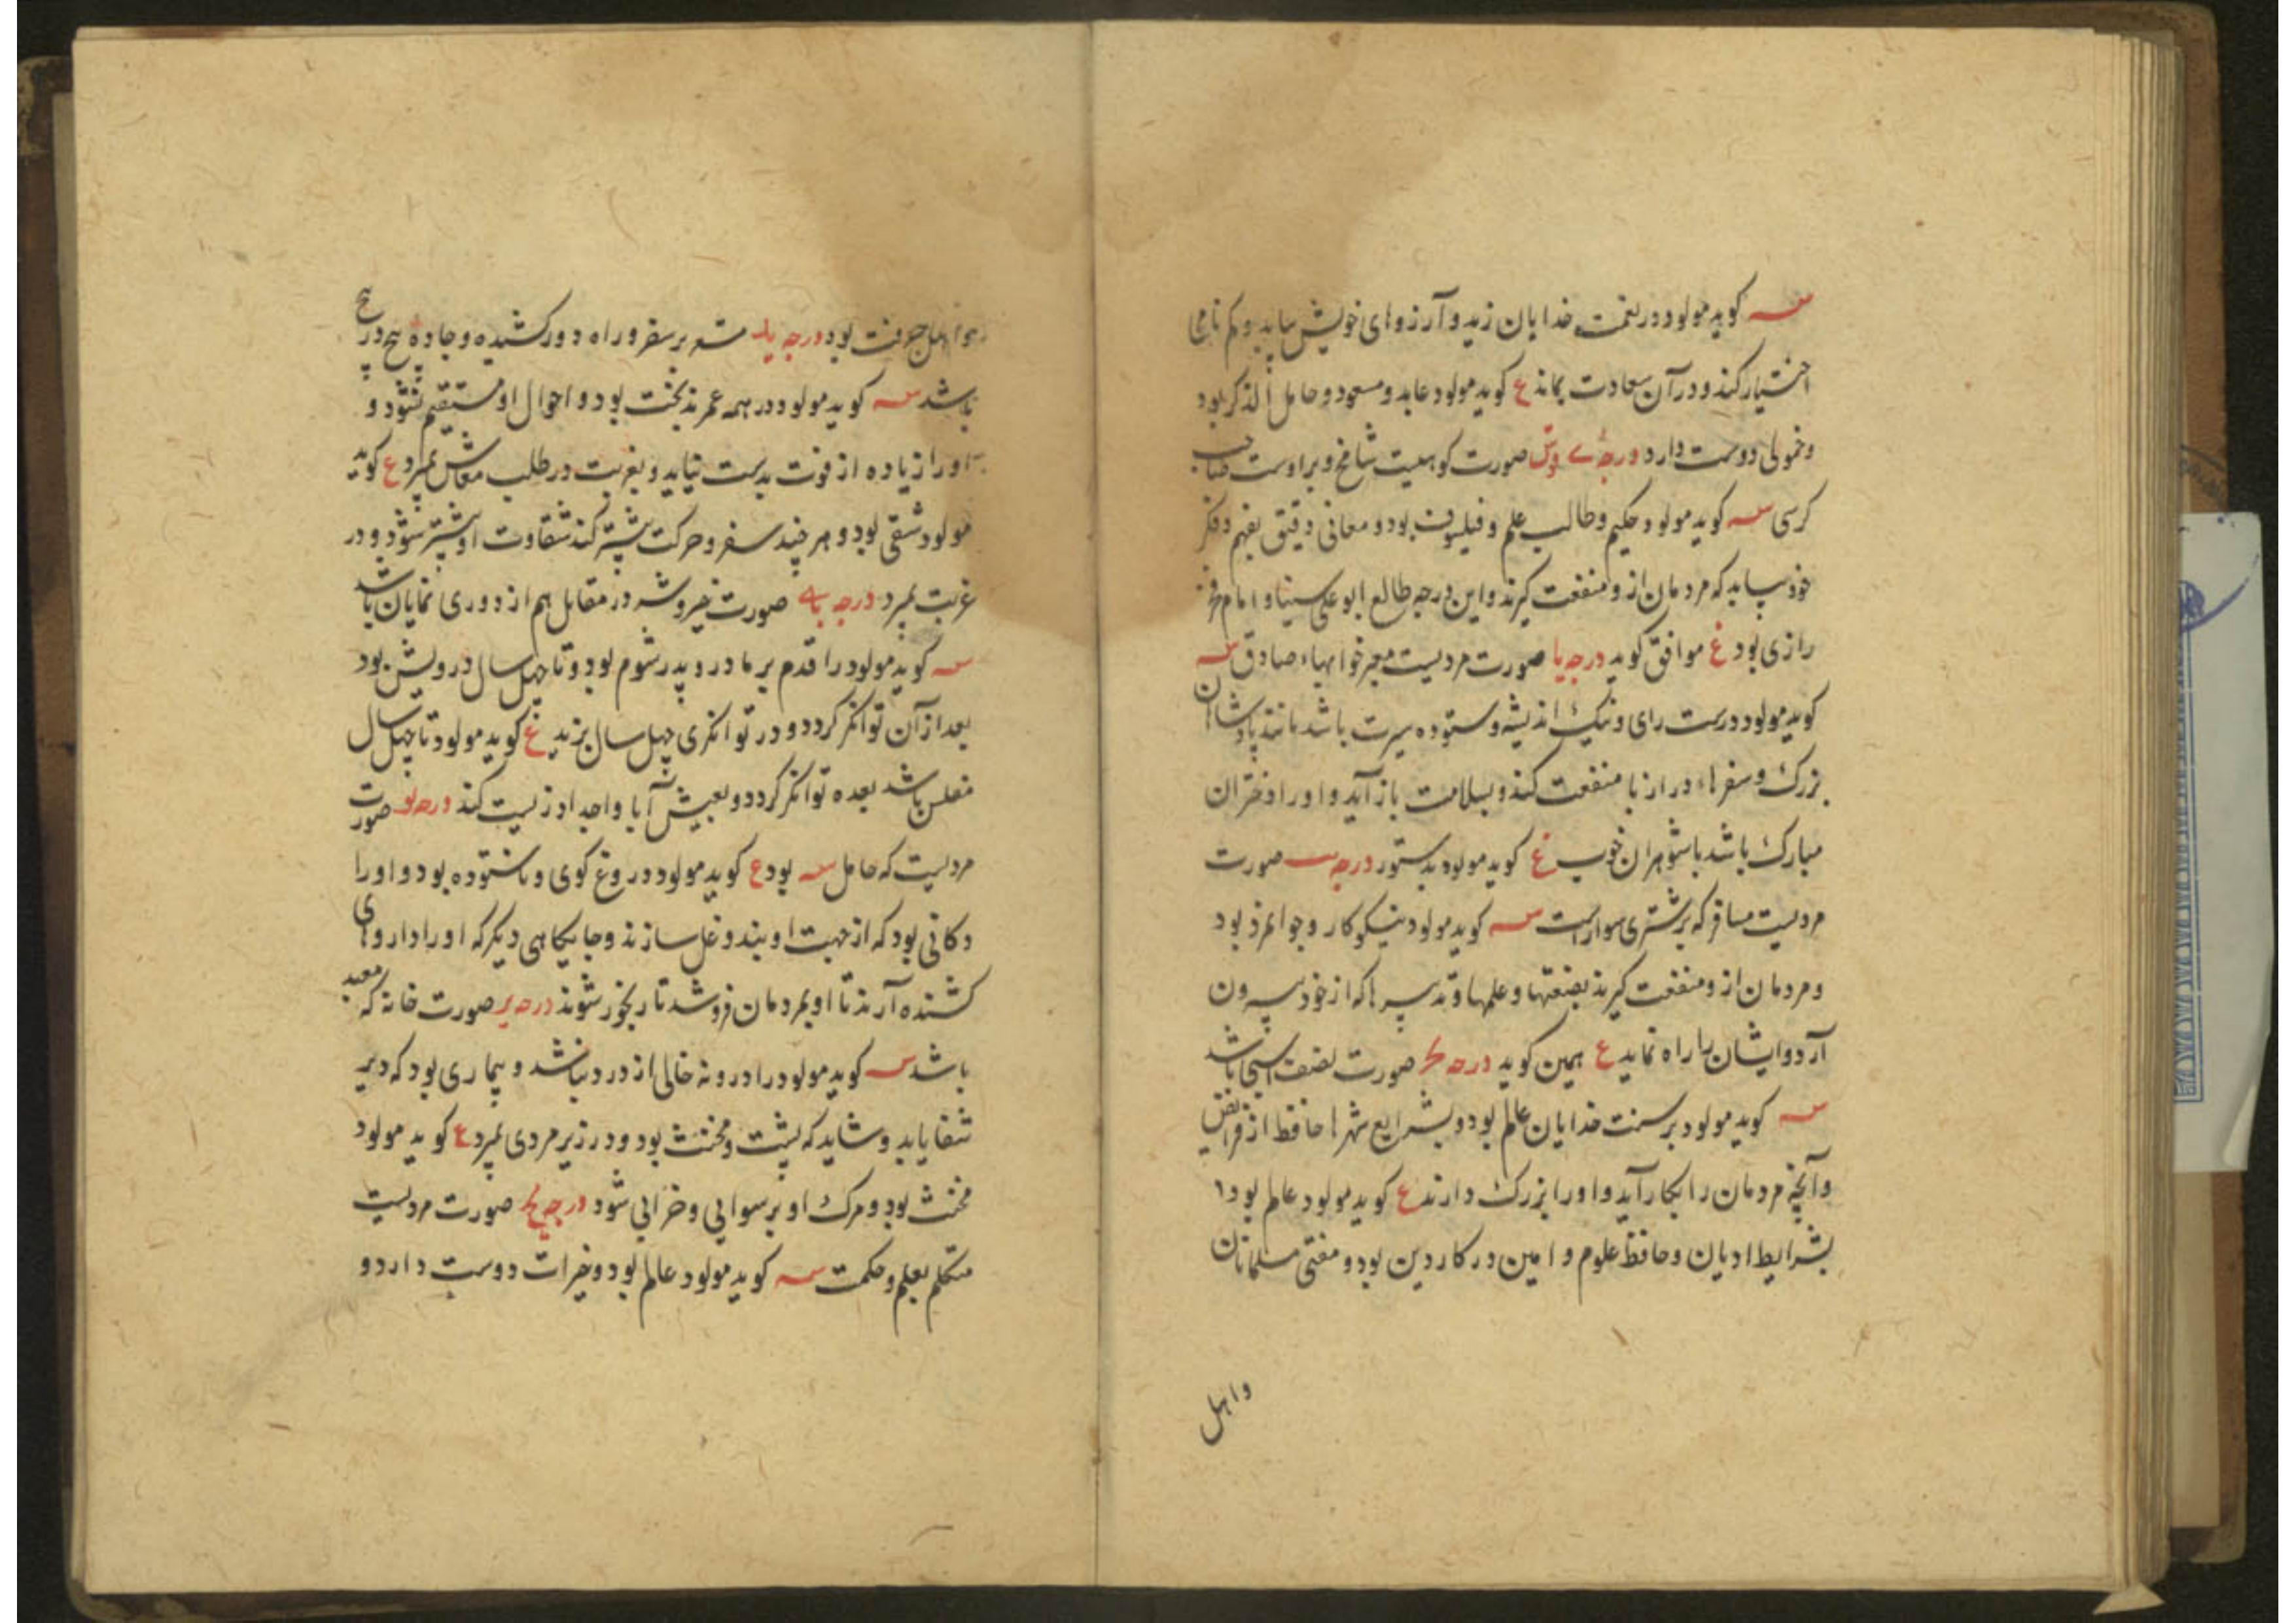 سه کوید مولود در نعمت خدایان زید و آرزوهای خویش بیابد و کم نامی
اختیار کند و در آن سعادت بماند ع کوید مولود عابد و مسعود و حامل الذکر بود
و خمولی دوست دارد درجه صورت کوهیست شامخ و بر اوست صاحب
کرسی سه کوید مولود حکیم و طالب علم و فیلسوف بود و معانی دقیق بفهم و فکر
خود بیابد که مردمان ازو منفعت کیرند و این درجه طالع ابو علی سینا و امام فخر
رازی بود ع موافق کوید درجه یا صورت مردیست معبر خوابهاء صادق سه
کوید مولود درست رای و نیک اندیشه و ستوده سیرت باشد مانند پادشاهان
بزرک و سفرهاء دراز با منفعت کند و بسلامت باز آید و او را دختران
مبارک باشد با شوهران خوب ع کوید مولود بدستور درجه یب صورت
مردیست مسافر که بر شتری سوار است سه کوید مولود نیکو کار و جوانمرد بود
و مردمان ازو منفعت کیرند بصنعتها و علمها و تدبیرها که از خود بیرون
آرد و ایشان را راه نماید ع همین کوید درجه صورت باشد
سه کوید مولود بر سنت خدایان عالم بود و بشرایع شهرها حافظ از فرایض
و آنچه مردمان را بکار آید و او را بزرک دارند ع کوید مولود عالم بود
بشرایط ادیان و حافظ علوم و امین در کار دین بود و مفتی مسلمانان
واهل
بود درجه ید بر سفر و راه دور کشیده و جاده پیچ در پیچ
باشد سه کوید مولود در همه عمر بدبخت بود و احوال او مستقیم نشود و
او را زیاده از قوت بدست نیاید و بغربت در طلب معاش بمیرد ع کوید
مولود شقی بود و هر چند سفر و حرکت بیشتر کند شقاوت او بیشتر شود و در
غربت بمیرد درجه یه صورت در مقابل هم از دوری نمایان باشد
سه کوید مولود را قدم بر مادر و پدر شوم بود و تا چهل سال درویش بود
بعد از آن توانکر کردد و در توانکری چهل سال بزید ع کوید مولود تا چهل سال
مفلس باشد بعده توانکر کردد و بعیش آبا و اجداد زیست کند درجه یو صورت
مردیست که حامل سه بود ع کوید مولود دروغ کوی و ناستوده بود و او را
دکانی بود که از جهت او بند و غل سازند و جایکاهی دیکر که او را داروهای
کشنده آرند تا او بمردمان فروشد تا رنجور شوند درجه یز صورت خانه که معبد
باشد سه کوید مولود را درونه خالی از درد نباشد و بیماری بود که دیر
شفا یابد و شاید که پشت و مخنث بود و در زیر مردی بمیرد ع کوید مولود
مخنث بود و مرک او برسوایی و خرابی شود درجه یح صورت مردیست
متکلم بعلم و حکمت سه کوید مولود عالم بود و خیرات دوست دارد و